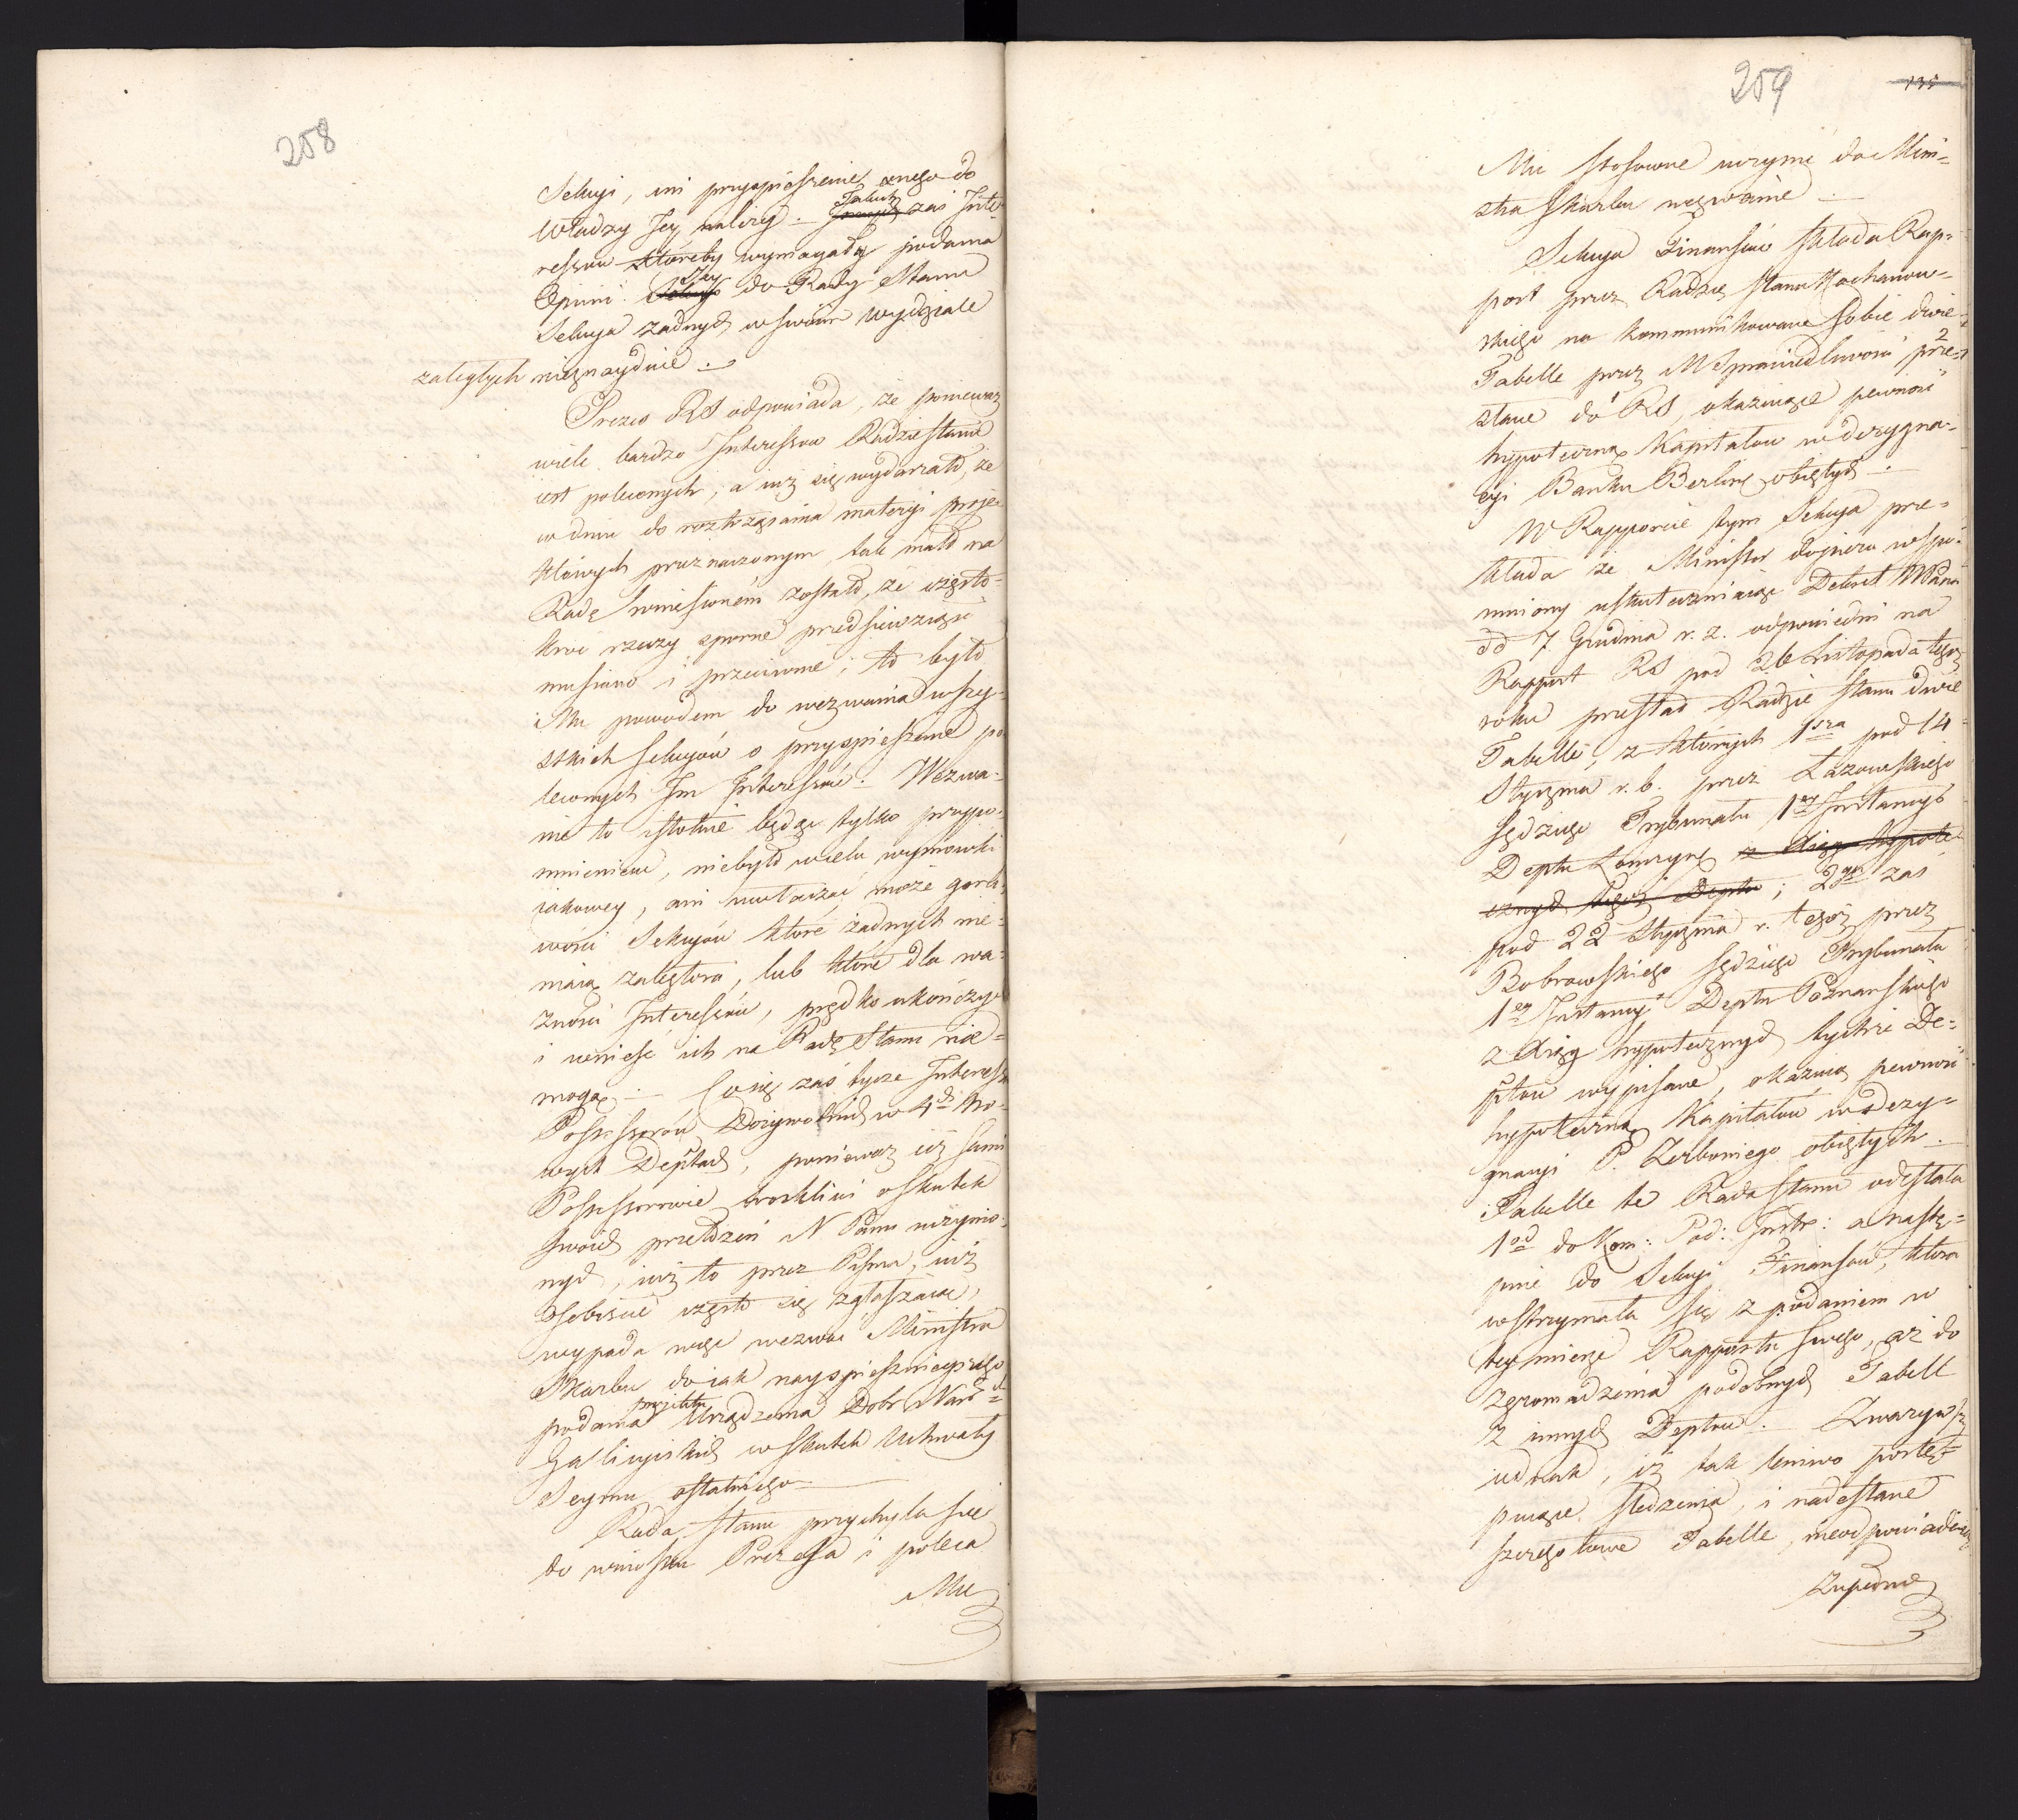 258
Sekcyi, ni przyspieszenie onego do
Władzy Jey należy. Takich zaś Inte-
ressow któreby wymagały podania
Opinii Jey do Rady Stanu
Sekcya żadnych w swoim wydziale
zaległych nieznayduie.
Prezes RS odpowiada, że ponieważ
wiele bardzo Interessow Radzie Stanu
iest poleconych, a iuż się wydarzało, że
w dniu do roztrząsania materyi proje-
ktowych przeznaczonym, tak mało na
Radę wniesionem zostało, że często-
kroć rzeczy sporne przedsiewziąść
musiano i przeciwnie; to było
Mu powodem do wezwania wszy-
stkich Sekcyów o przyspieszenie po-
leconych Im Interessów. Wezwa-
nie to istotnie będąc tylko przypo-
mnieniem, niebyło wcale wymowki
iakowey, ani uwłaczać może gorli-
wości Sekcyów które żadnych nie-
maią zaległości, lub które dla wa-
żności Interessów, prędko ukończyć
i wnieść ich na Radę Stanu nie-
mogą. Co się zaś tycze Interessu
Possessorów Dożywotnich w 4ch No-
wych Deptach, ponieważ iż sami
Possessorowie troskliwi o skutek
swoich przełożeń N Panu uczynio-
nych, iuż to przez Pisma, iuż
osobiście często się zgłaszaią,
wypada więc wezwać Ministra
Skarbu do iak nayspiesznieyszego
podania projektu Urządzenia Dobr Narod
Gallicyiskich w skutek Uchwały
Seymu ostatniego
Rada Stanu przychyla się
do wniosku Prezesa i poleca
Mu
259
135
Mu stosowne uczynić do Mini-
stra Skarbu wezwanie.
Sekcya Finansów składa Rap-
port przez Radzcę Stanu Kochanow-
skiego na kommunikowane sobie dwie
Tabelle przez M Sprawiedliwości prze-
2
słane do RS, okazuiące pewność
hypoteczną Kapitałow w dezygna-
cyi Banku Berliny obiętych.
W Rapporcie tym Sekcya prze-
kłada że Minister dopiero wspo-
mniony uskuteczniaiąc Dekret NPana
dd 7. Grudnia r. z. odpowiedni na
Rapport RS pod 26 Listopada tegoż
roku przesłał Radzie Stanu dwie
Tabelle, z których 1sza pod 14
Stycznia r. b. przez Łazowskiego
Sędziego Trybunału 1ey Instancyi
Deptu Łomżyń z Xiąg hypote-
cznych tegoż Deptu; 2ga zaś
pod 22 Stycznia r. tegoż przez
Bobrowskiego Sędziego Trybunału
1ey Instancyi Deptu Poznańskiego
z Xiąg hypotecznych tychże De-
ptow wypisane, okazuią pewność
hypoteczną Kapitałów w dezy-
gnacyi P. Zerboniego obiętych.
Tabelle te Rada Stanu odesłała
1od do Kom: Pod: Instr: a nastę-
pnie do Sekcyi Finansow, ktora
wstrzymała się z podaniem w
tey mierze Rapportu swego, aż do
zgromadzenia podobnych Tabell
z innych Deptow. Zważywszy
iednak, iż tak leniwo postę-
puiące śledzenia, i nadesłane
szczegołowe Tabelle, nieodpowiadaią
Zupełnie